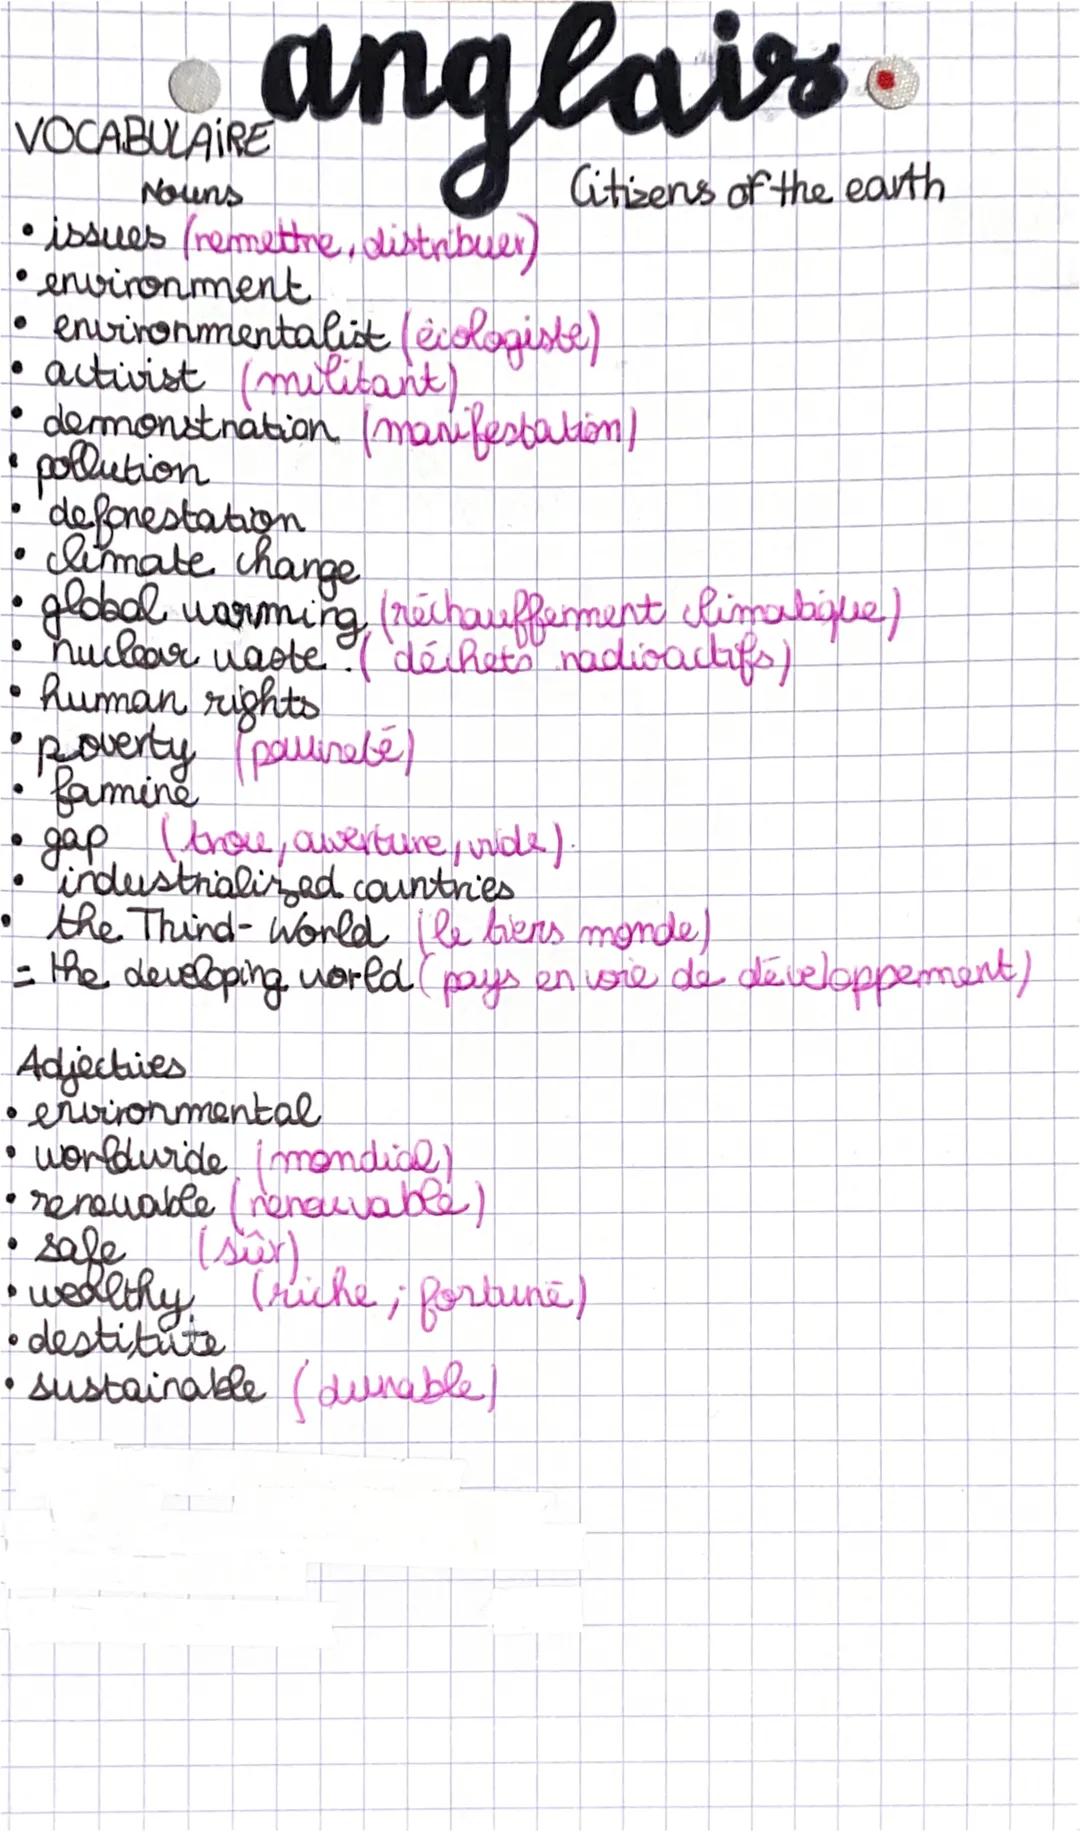 anglais
VOCABULAIRE
Nouns
Citizens of the earth
• issues (remettre, distribuer)
• environment
• environmentalist (écologiste)
• activist (militant)
• demonstration (manifestation)
• pollution
• deforestation
• climate change
• global warming (réchauffement climatique)
• nuclear waste. (déchets radioactifs)
• human rights
• poverty (pauvreté)
• famine
• gap (trou, ouverture, vide).
• industrialized countries
• the Third-World (le tiers monde)
= the developing world (pays en voie de développement)
Adjectives
• environmental
• worldwide (mondial)
• renewable (renouvable)
• safe (sûr)
• wealthy (riche ; fortuné)
• destitute
• sustainable (durable)